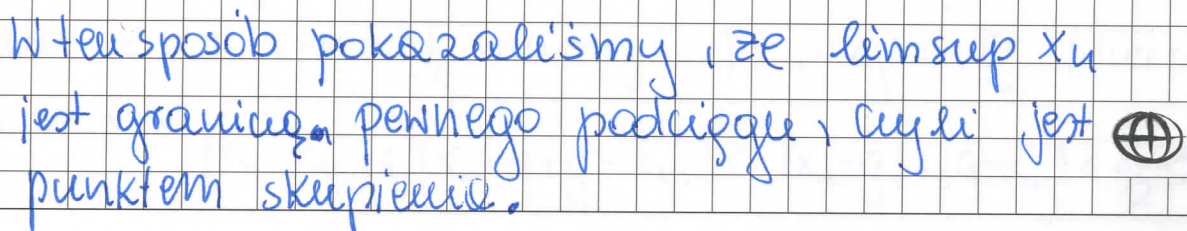 W ten sposób pokazaliśmy, że limsup xn
jest granicą pewnego podciągu, czyli jest
punktem skupienia.